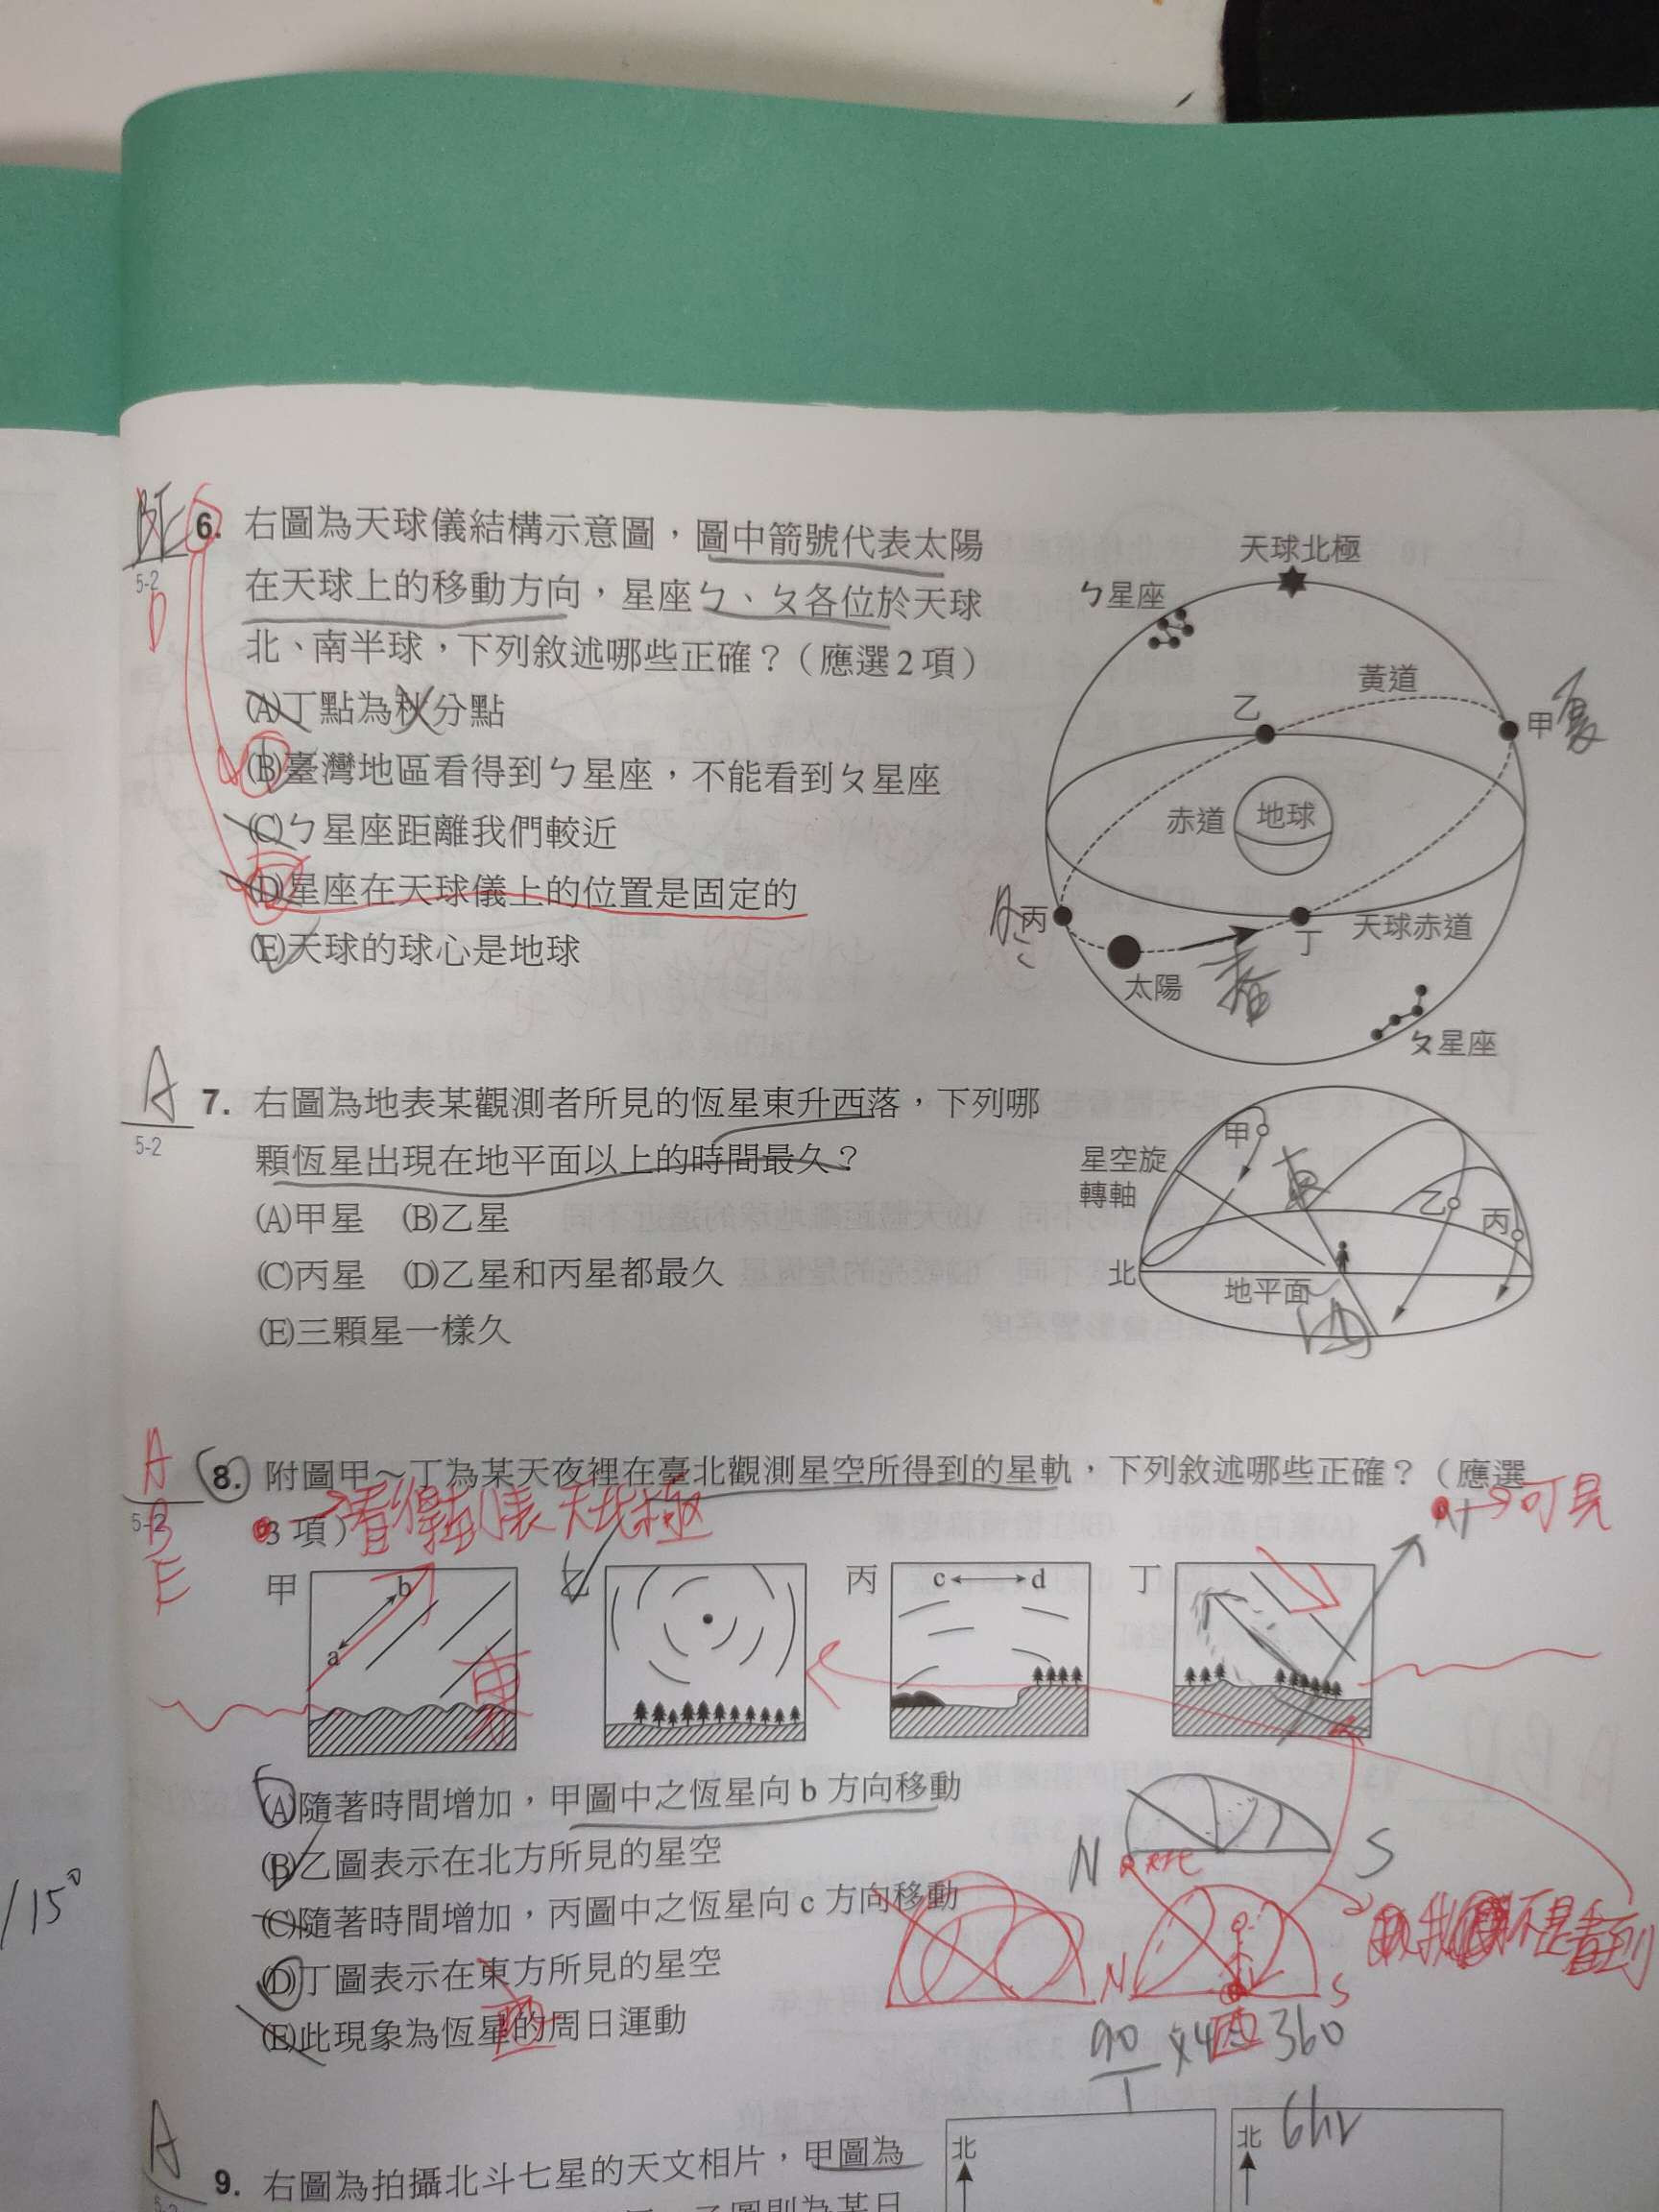 6. 右圖為天球儀結構示意圖，圖中箭號代表太陽
在天球上的移動方向，星座ㄅ、ㄆ各位於天球
北、南半球，下列敘述哪些正確？（應選2項）
(A)丁點為秋分點
(B)臺灣地區看得到ㄅ星座，不能看到ㄆ星座
(C)ㄅ星座距離我們較近
(D)星座在天球儀上的位置是固定的
(E)天球的球心是地球
5-2
D
天球北極
ㄅ星座
黃道
乙
甲
夏
赤道
地球
丙
冬
丁
天球赤道
太陽
春
ㄆ星座
A
5-2
7. 右圖為地表某觀測者所見的恆星東升西落，下列哪
顆恆星出現在地平面以上的時間最久？
(A)甲星 (B)乙星
(C)丙星 (D)乙星和丙星都最久
(E)三顆星一樣久
甲
星空旋
轉軸
東
乙
丙
北
地平面
西
A
B
E
5-2
8. 附圖甲～丁為某天夜裡在臺北觀測星空所得到的星軌，下列敘述哪些正確？（應選
3項）
甲
b
a
東
乙
丙
c
d
丁
可見
(A)隨著時間增加，甲圖中之恆星向b方向移動
(B)乙圖表示在北方所見的星空
(C)隨著時間增加，丙圖中之恆星向c方向移動
(D)丁圖表示在東方所見的星空
西
(E)此現象為恆星的周日運動
N
S
N
S
西
90/1 x4 = 360
6hr
/15°
A
9. 右圖為拍攝北斗七星的天文相片，甲圖為
北
北